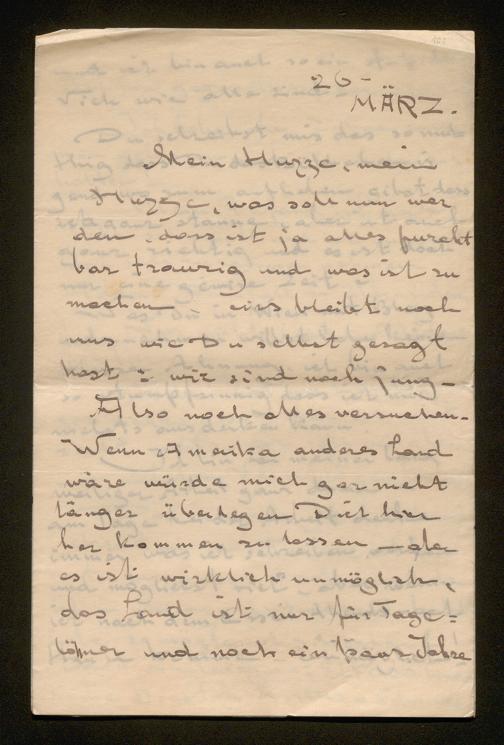 26-
MÄRZ.
Mein Huzzc, mein
Huzzc, was soll nun wer
den, dass ist ja alles furcht
bar traurig und was ist zu
machen - eins bleibt noch
uns wie Du selbst gesagt
hast : wir sind noch jung -
Also noch alles versuchen.
Wenn Amerika anderes Land
wäre würde mich gar nicht
länger überlegen Dich hier
her kommen zu lassen - aber
es ist wirklich unmöglich,
das Land ist nur für Tage=
löhner und noch ein paar Jahre